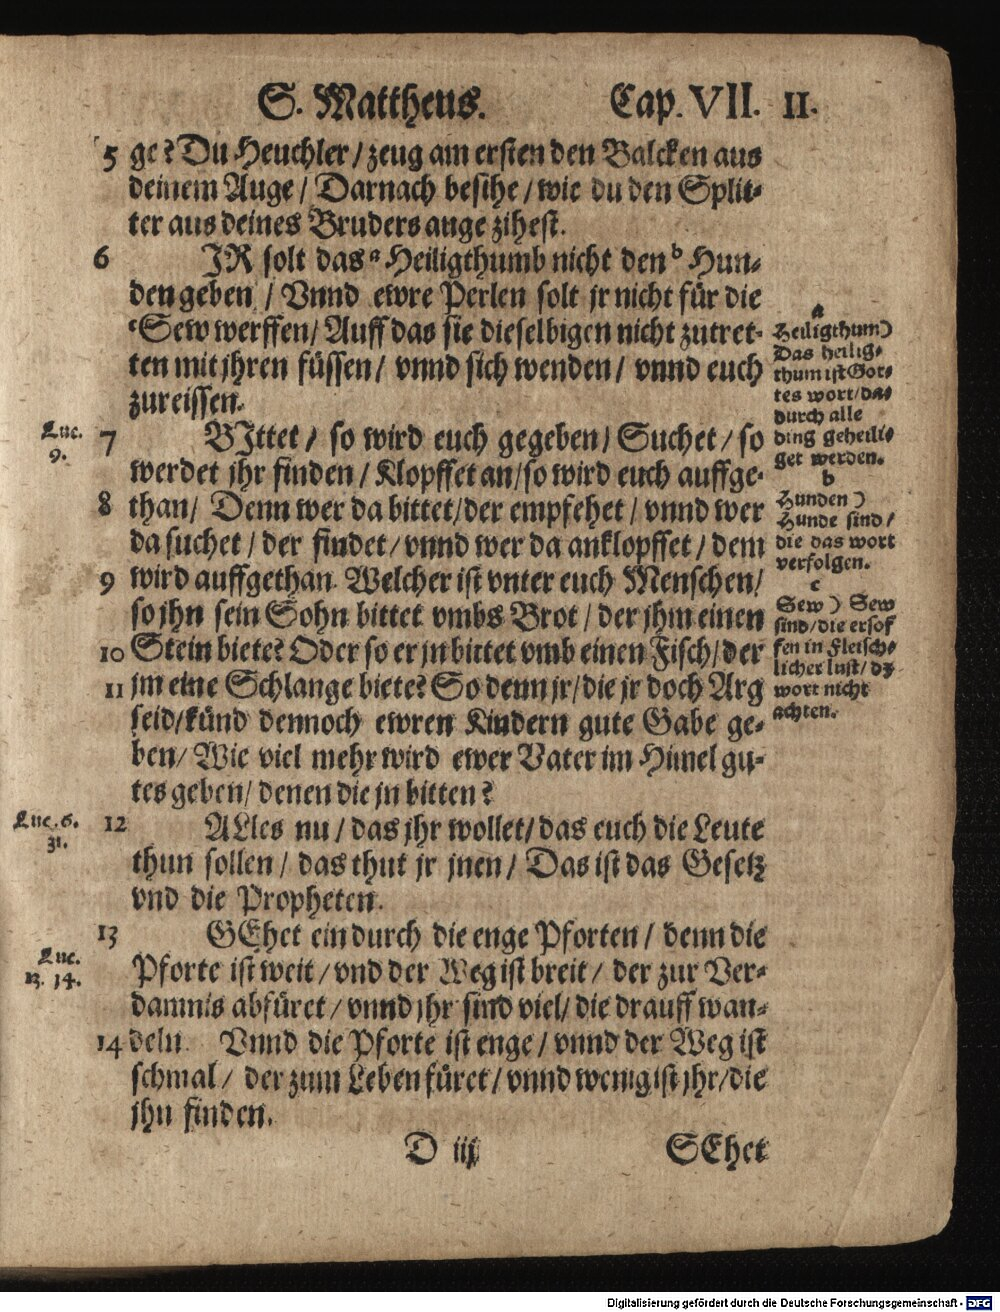 S. Mattheus. Cap. VII. 11.
5 ge? Du Heuchler / zeug am ersten den Balcken aus
deinem Auge / Darnach besihe / wie du den Split-
ter aus deines Bruders auge zihest.
6 JR solt das a Heiligthumb nicht den b Hun-
den geben / Vnnd ewre Perlen solt jr nicht für die
c Sew werffen / Auff das sie dieselbigen nicht zutret-
ten mit jhren füssen / vnnd sich wenden / vnnd euch
zureissen.
Luc. 9.
7 BJttet / so wird euch gegeben / Suchet / so
werdet jhr finden / Klopffet an / so wird euch auffge-
8 than / Denn wer da bittet / der empfehet / vnnd wer
da suchet / der findet / vnnd wer da anklopffet / dem
9 wird auffgethan. Welcher ist vnter euch Menschen /
so jhn sein Sohn bittet vmbs Brot / der jhm einen
10 Stein biete? Oder so er jn bittet vmb einen Fisch / der
11 jm eine Schlange biete? So denn jr / die jr doch Arg
seid / künd dennoch ewren Kindern gute Gabe ge-
ben / Wie viel mehr wird ewer Vater im Himel gu-
tes geben / denen die jn bitten?
Luc. 6. 31.
12 ALles nu / das jhr wollet / das euch die Leute
thun sollen / das thut jr jnen / Das ist das Gesetz
vnd die Propheten.
13 GEhet ein durch die enge Pforten / denn die
Luc. 13. 14.
Pforte ist weit / vnd der Weg ist breit / der zur Ver-
damnis abfüret / vnnd jhr sind viel / die drauff wan-
14 deln. Vnnd die Pforte ist enge / vnnd der Weg ist
schmal / der zum Leben füret / vnnd wenig ist jhr / die
jhn finden.
D iij SEhet
a
Heiligthum)
Das heilig-
thum ist Got-
tes wort / da-
durch alle
ding geheili-
get werden.
b
Hunden)
Hunde sind /
die das wort
verfolgen.
c
Sew) Sew
sind / die ersof
fen in Fleisch-
licher lust / dz
wort nicht
achten.
Digitalisierung gefördert durch die Deutsche Forschungsgemeinschaft - DFG